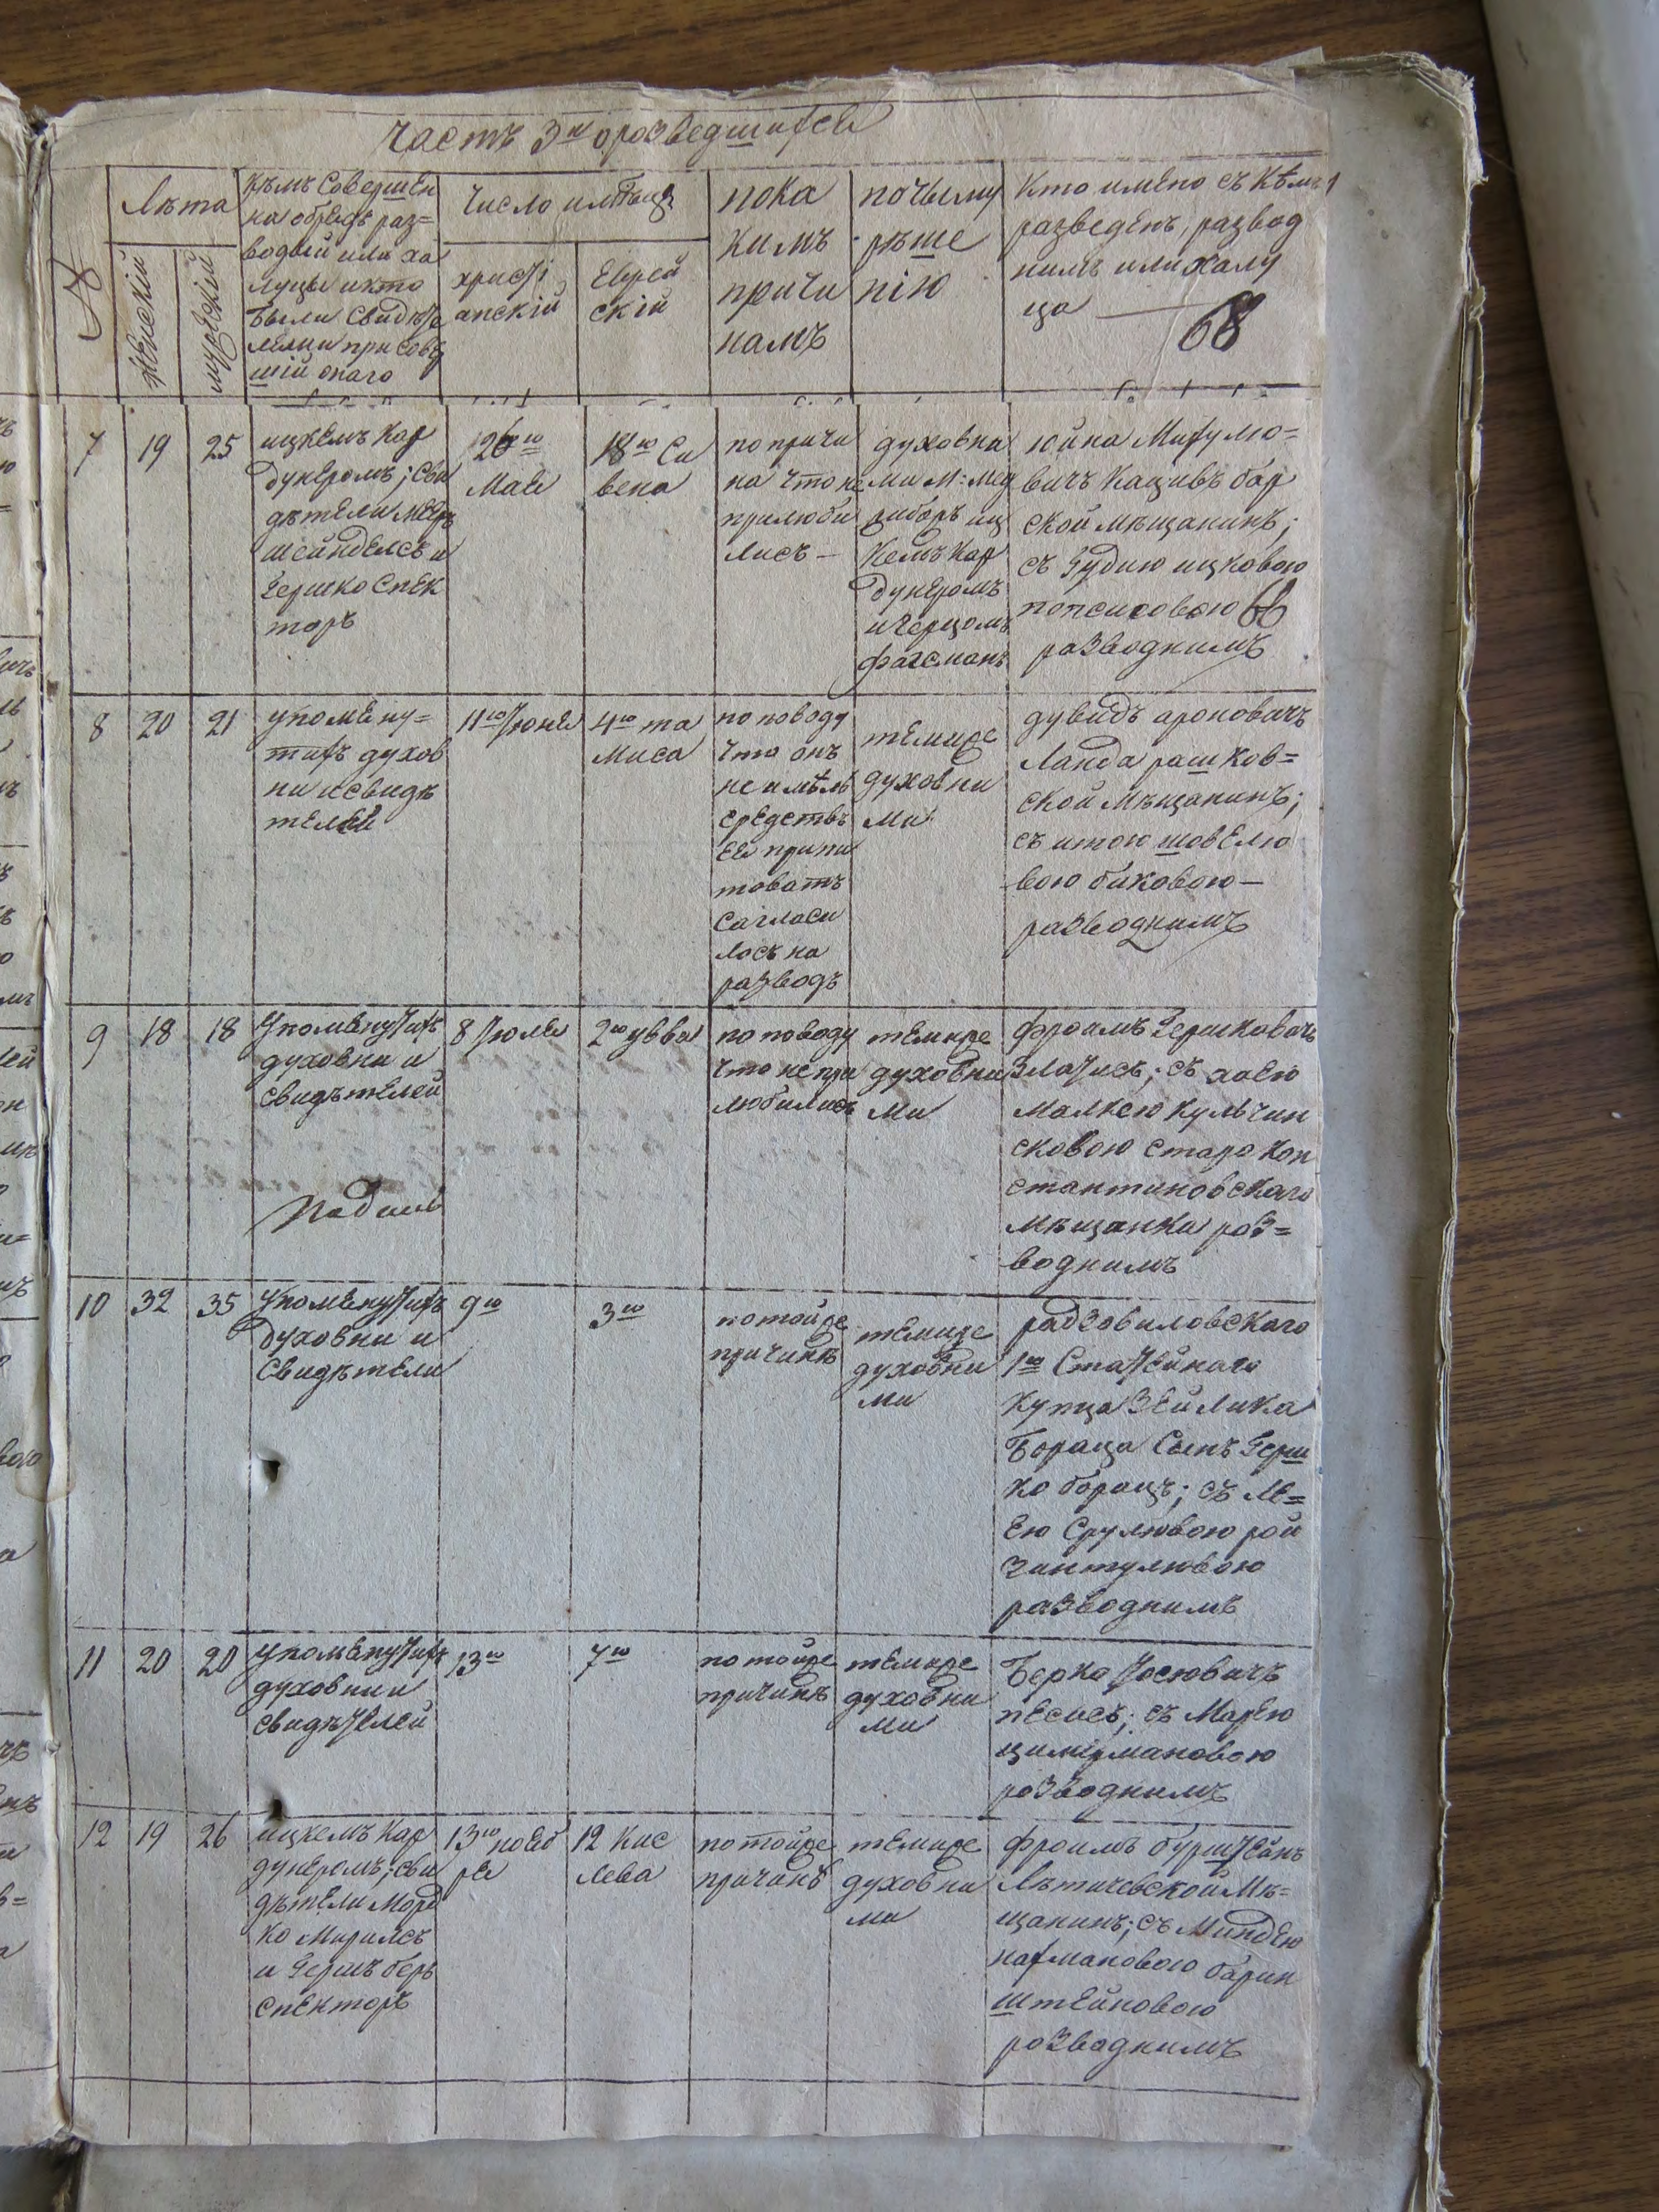 Часть 3я о розведшихся
№
Лѣта
Женский
мужеский
Кѣмъ Совершен
на обрядъ раз=
водный или ха
луцы и кто
были свидѣте
лями при совер
шій онаго
Число и мѣсяцъ
христі
анскій
Еврей
скій
пока
кимъ
причи
намъ
почьіему
рѣше
нію
Кто имено съ Кѣмъ
разведенъ, развод
нимъ или халу
ца
68
7
19
25
ицкемъ Кар
дунеромъ; сви
дѣтели меер
шейнделсъ и
Гершко Спек
торъ
26го
Мая
18го Си
вена
по причи
на что не
прилюби
лись —
духовни
ми М: Мед
жиборъ иц
кемъ Кар
дунеромъ
и герцомъ
фагсманъ
юйна Михулю=
вичъ Кацивъ бар
ской мѣщанинъ;
съ Гудию ицковою
попсисовою 66
разводнимъ
8
20
21
упомену=
тихъ духов
ни и свидѣ
телей
11го Іюня
4го та
миса
по поводу
что онъ
не имѣлъ
средствъ
ея припи
товать
сагласи
лось на
разводъ
темиже
духовни
ми
дувидъ ароновичъ
Ланда рашков=
ской мѣщанинъ;
съ итою шовелю
вою биковою —
разводнимъ
9
18
18
упоменутихъ
духовни и
свидѣтелей
8 Іюля
2го увва
по поводу
что не при
любились
темиже
духовни
ми
фроимъ Гершковичъ
Злотисъ; съ хаею
малкою кульчин
сковою старо кон
стантиновскаго
мѣщанки роз=
воднимъ
10
32
35
упоменутихъ
духовни и
Свидѣтели
9го
3го
по тойже
причинѣ
темиже
духовни
ми
радзовиловскаго
1го Статейнаго
купца Зейлика
бораца Сынъ Герш
ко борацъ; съ Ле=
ею Срулювою рой
зинтулювою
разводнимъ
11
20
20
упоменутихъ
духовни и
свидѣтелей
13го
7го
по тойже
причинѣ
темиже
духовни
ми
Берко Іосювичъ
песисъ; съ Марею
цимермановою
розводнимъ
12
19
26
ицкемъ Кар
дунеромъ; сви
дѣтели Морд
ко Мирилсъ
и Гершъ беръ
спекторъ
13го ноеб
ря
12 Кис
лева
по тойже
причинѣ
темиже
духовни
ми
фроимъ бурштейнъ
Лѣтичевской Мѣ=
щанинъ; съ Миндею
нахмановою барин
штейновою
розводнимъ